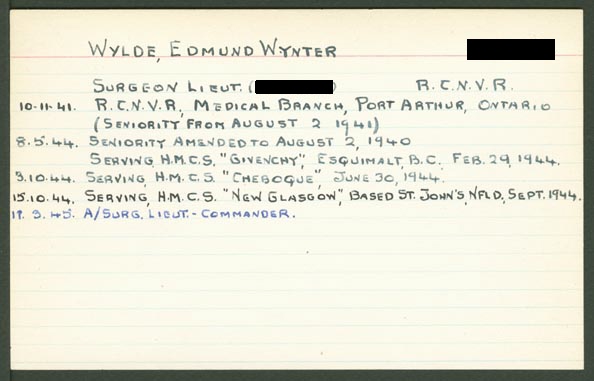 WYLDE, EDMUND WYNTER
SURGEON LIEUT. ( ) R.C.N.V.R.
10.11.41. R.C.N.V.R, MEDICAL BRANCH, PORT ARTHUR, ONTARIO
(SENIORITY FROM AUGUST 2 1941)
8.5.44. SENIORITY AMENDED TO AUGUST 2, 1940
SERVING, H.M.C.S. "GIVENCHY", ESQUIMALT, B.C. FEB. 29, 1944.
3.10.44. SERVING, H.M.C.S. "CHEBOGUE", JUNE 30, 1944.
15.10.44. SERVING, H.M.C.S. "NEW GLASGOW", BASED ST. JOHN'S, NFLD, SEPT. 1944.
3.45. A/SURG. LIEUT.-COMMANDER.